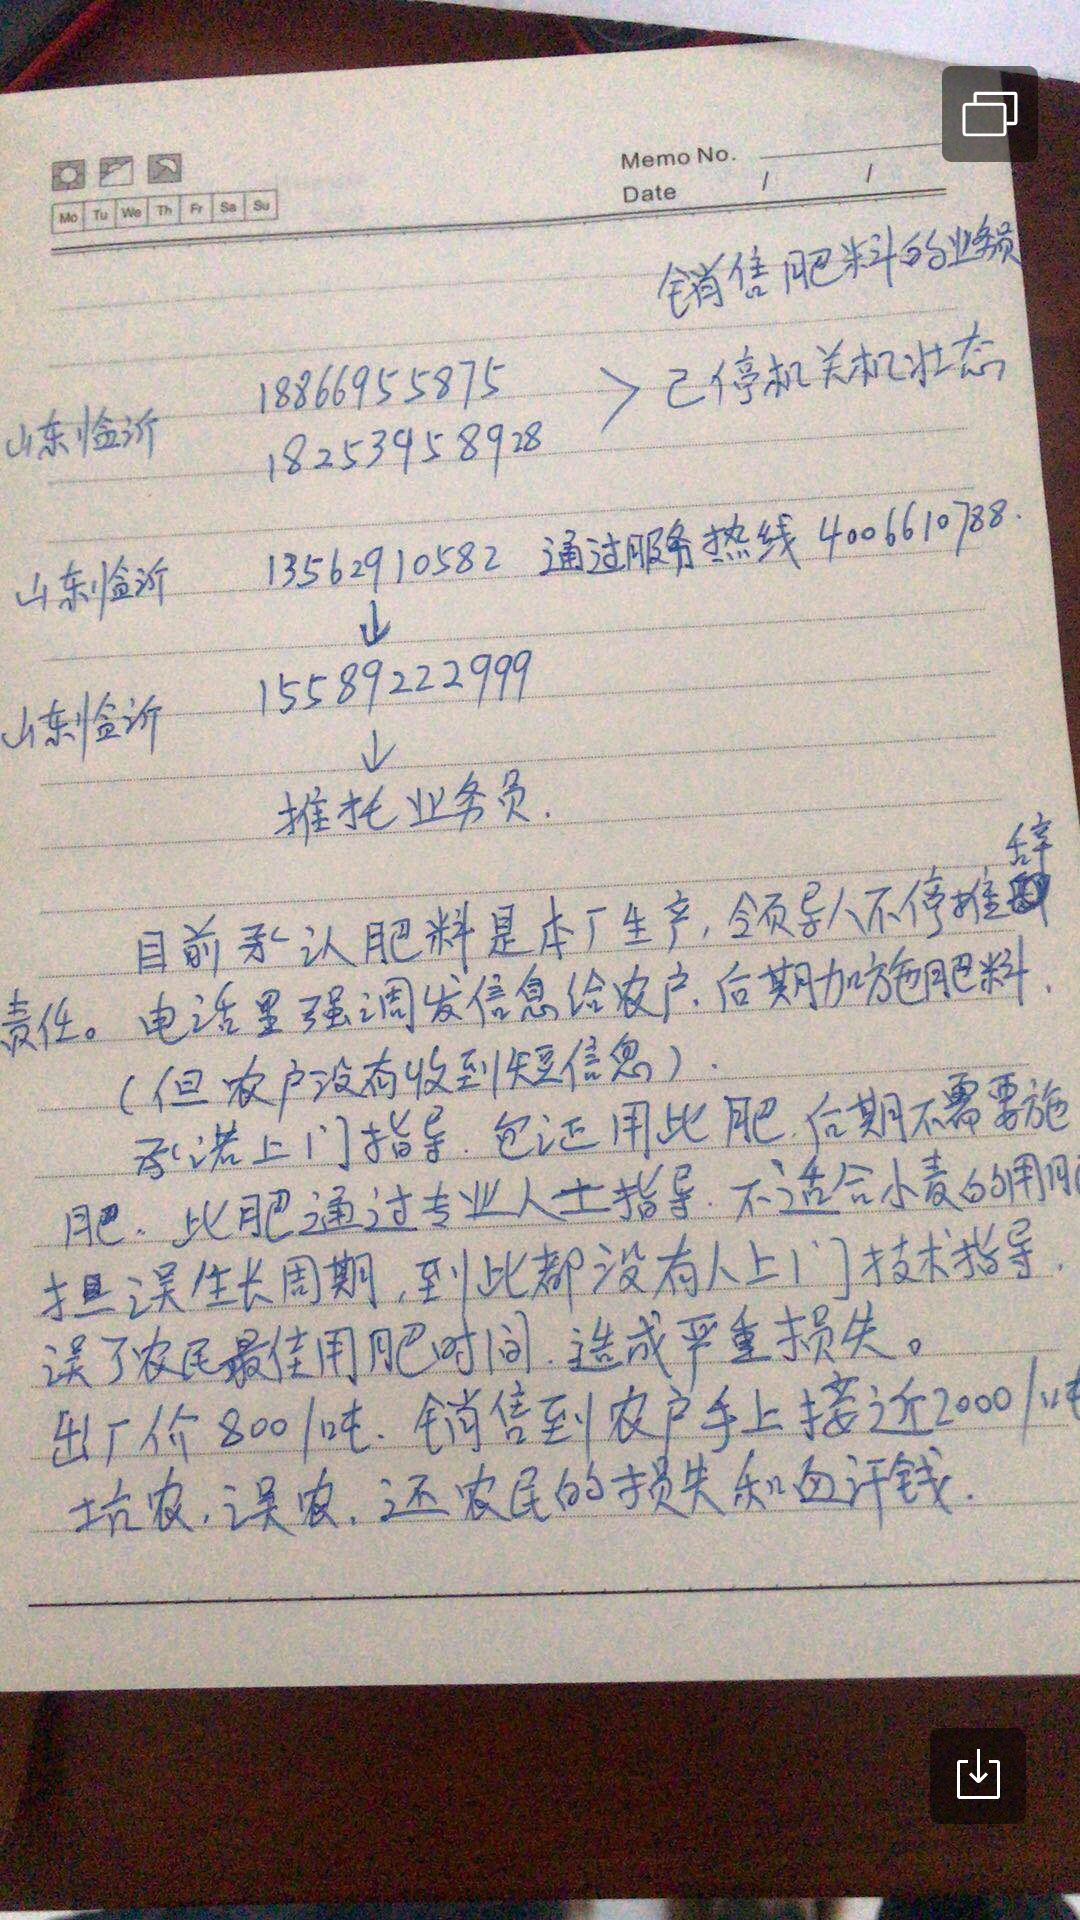 Memo No.
Mo Tu We Th Fr Sa Su
Date / /
销售肥料的业务员
18866955875 > 已停机关机状态
山东临沂
18253958928
山东临沂 13562910582 通过服务热线 4006610788.
↓
山东临沂 15589222999
↓
推托业务员.
辞
目前承认肥料是本厂生产,领导人不停推
责任。电话里强调发信息给农户.后期加施肥料.
(但农户没有收到短信息).
承诺上门指导.包证用此肥.后期不需要施
肥.此肥通过专业人士指导.不适合小麦的用肥
担误生长周期,到此都没有人上门技术指导.
误了农民最佳用肥时间.造成严重损失。
出厂价800/吨.销售到农户手上接近2000/吨
坑农.误农.还农民的损失和血汗钱.